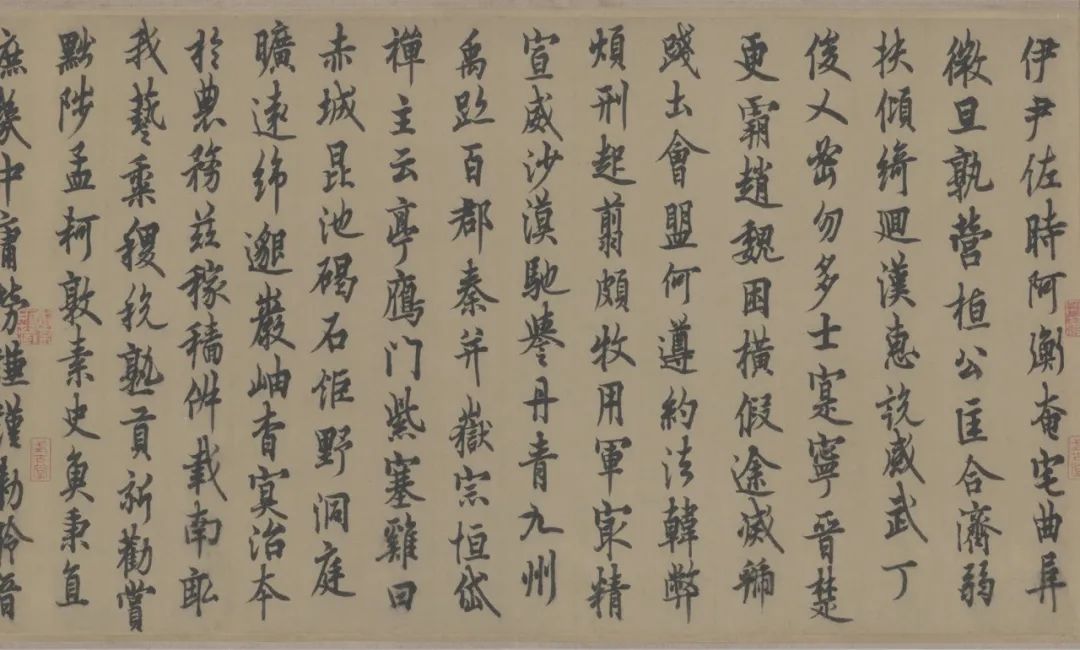 伊尹佐時阿衡奄宅曲阜
微旦孰營桓公匡合濟弱
扶傾綺迴漢惠説感武丁
俊乂密勿多士寔寧晉楚
更霸趙魏困橫假途滅虢
踐土會盟何遵約法韓弊
煩刑起翦頗牧用軍冣精
宣威沙漠馳譽丹青九州
禹跡百郡秦并嶽宗恒岱
禪主云亭鴈門紫塞雞田
赤城昆池碣石鉅野洞庭
曠遠綿邈巖岫杳冥治本
於農務茲稼穡俶載南畝
我藝黍稷稅熟貢新勸賞
黜陟孟軻敦素史魚秉直
庶幾中庸勞謙謹勑聆音